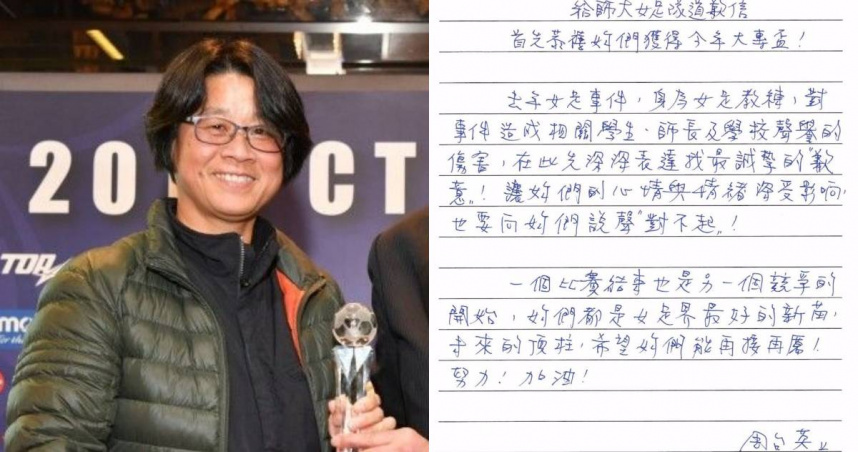 20
CT
TOP
給師大女足隊道歉信
首先恭禧妳們獲得今年大專盃！
去年女足事件，身為女足教練，對
事件造成相關學生、師長及學校聲譽的
傷害，在此先深深表達我最誠摯的"歉
意"！讓妳們的心情與情緒深受影響，
也要向妳們說聲"對不起"！
一個比賽結束也是另一個競爭的
開始，妳們都是女足界最好的新苗，
未來的頂柱，希望妳們能再接再厲！
努力！加油！
周台英